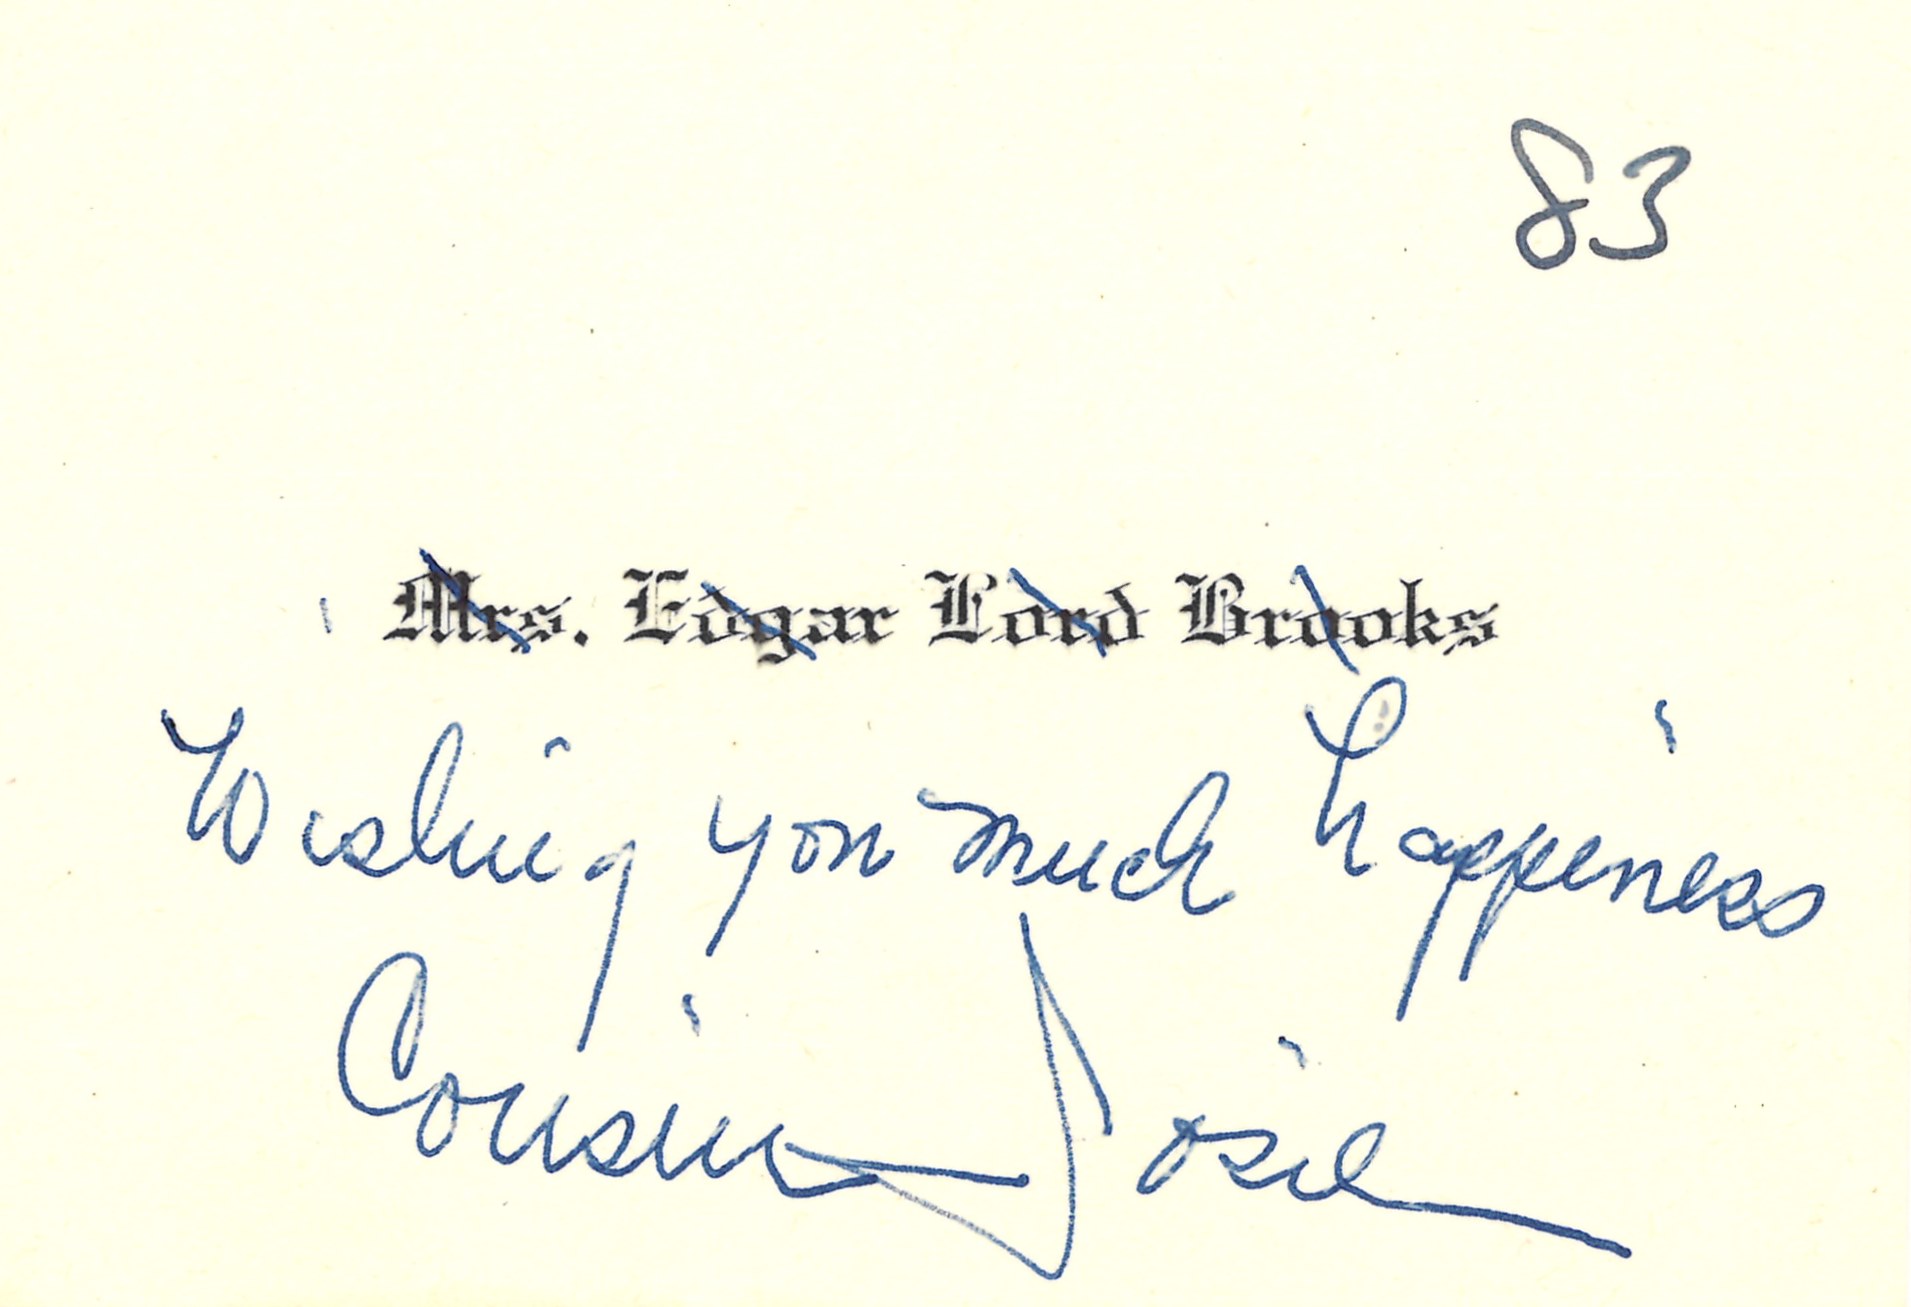 83
Mrs. Edgar Lord Brooks
Wishing you much happiness
Cousin Josie